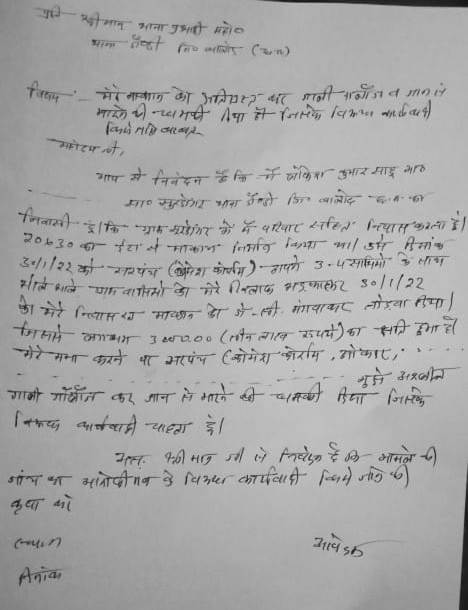 प्रति श्रीमान थाना प्रभारी महो०
थाना जि० बालोद (छ.ग.)
विषय :- मेरे मकान को क्षतिग्रस्त कर गाली गलौज व जान से
मारने की धमकी दिया है जिसके विरूध कार्यवाही
किये जाने बाबत्
महोदय जी,
आप से निवेदन है कि मैं कुमार साहू
सा० थाना जि० बालोद छ.ग. का
निवासी हूं कि ग्राम में मैं परिवार सहित निवास करता हूं।
20x30 का ईटा से मकान निर्माण किया था। उसे दिनांक
30/1/22 को सरपंच ( ) अपने 3-4 साथियों के साथ
भोले भाले ग्राम वासियों को मेरे खिलाफ भड़काकर 30/1/22
को मेरे निवासरत मकान को जे.सी. मंगवाकर तोड़वा दिया।
जिसमें लगभग 300000.00 (तीन लाख रूपये) का क्षति हुआ है।
मेरे मना करने पर सरपंच (
मुझे अश्लील
गाली गलौज कर जान से मारने की धमकी दिया जिसके
विरूध कार्यवाही चाहता हूं।
अतः श्रीमान जी से निवेदन है कि मामले की
जांच कर के विरूध कार्यवाही किये जाने की
कृपा करें
स्थान
दिनांक
आवेदक